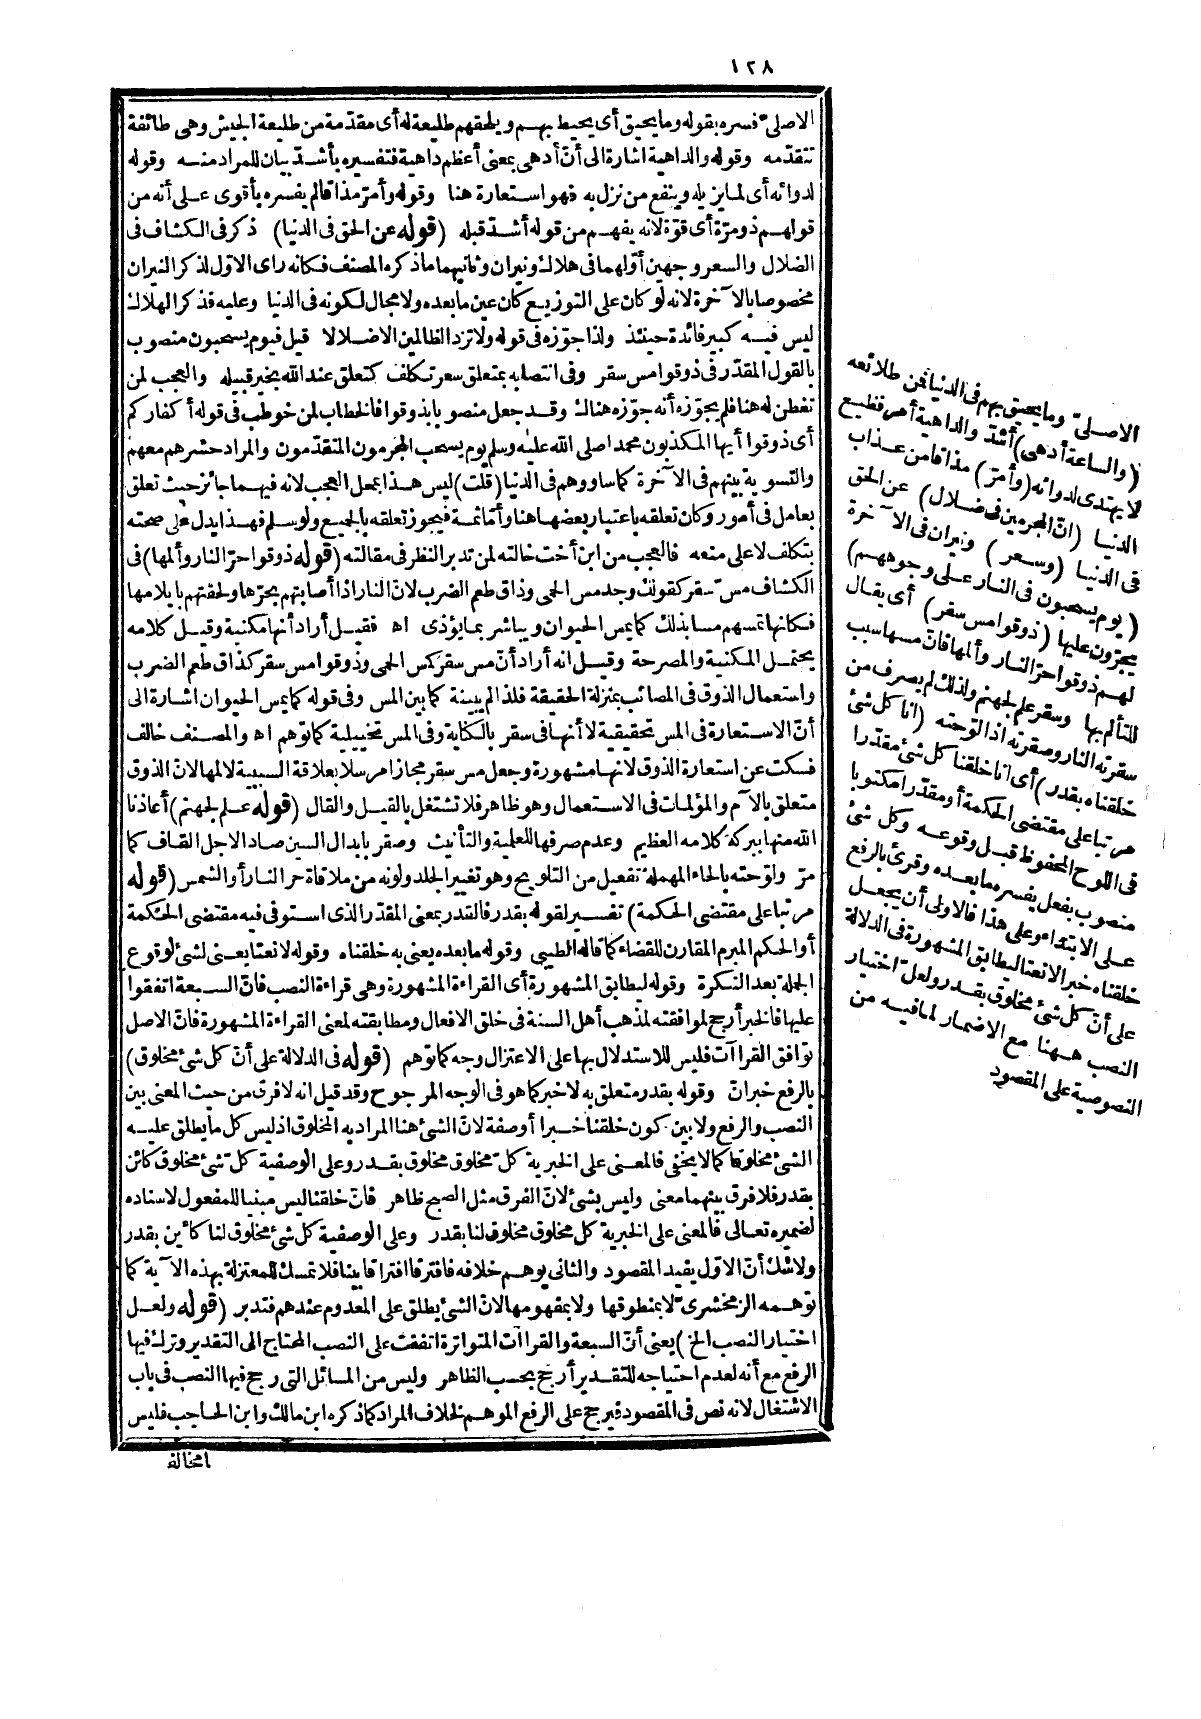 ١٢٨
الاصلى فسره بقوله وما يحيق أى يحيط بهم ويلحقهم طليعة له أى مقدمة من طليعة الجيش وهى طائفة
تتقدمه وقوله والداهية اشارة الى أنّ أدهى بمعنى أعظم داهية فتفسيره بأشدّ بيان للمراد منه وقوله
لدوائه أى لما يزيله وينفع من نزل به فهو استعارة هنا وقوله وأمرّ مذاقا لم يفسره بأقوى على أنه من
قولهم ذو مرّة أى قوّة لانه يفهم من قوله أشدّ قبله (قوله عن الحق فى الدنيا) ذكر فى الكشاف فى
الضلال والسعر وجهين أوّلهما فى هلاك ونيران وثانيهما ما ذكره المصنف فكانه رأى الاوّل لذكر النيران
مخصوصا بالآخرة لانه لو كان على التوزيع كان عين ما بعده ولا مجال لكونه فى الدنيا وعليه فذكر الهلاك
ليس فيه كبير فائدة حينئذ ولذا جوّزه فى قوله ولا تزد الظالمين الا ضلالا قيل فيوم يسحبون منصوب
بالقول المقدّر فى ذوقوا مس سقر وفى انتصابه بمتعلق سعر تكلف كتعلق عند الله بخير قبيله والعجب لمن
تفطن له هنا فلم يجوّزه أنه جوّزه هناك وقد جعل منصوبا بذوقوا فالخطاب لمن خوطب فى قوله أكفاركم
أى ذوقوا أيها المكذبون محمدا صلى الله عليه وسلم يوم يسحب المجرمون المتقدّمون والمراد حشرهم معهم
والتسوية بينهم فى الآخرة كما ساووهم فى الدنيا (قلت) ليس هذا بمحل العجب لانه فيهما جائز حيث تعلق
بعامل فى أمور وكان تعلقه باعتبار بعضها هنا وأمّا ثمة فيجوز تعلقه بالجميع ولو سلم فهذا يدل على صحته
بتكلف لا على منعه فالعجب من ابن أخت خالته لمن تدبر النظر فى مقالته (قوله ذوقوا حرّ النار وألمها) فى
الكشاف مسّ سقر كقولك وجد مس الحمى وذاق طعم الضرب لانّ النار اذا أصابتهم بحرّها ولحقتهم بايلامها
فكانها تمسهم مسا بذلك كما يمس الحيوان ويباشر بما يؤذى اه فقيل أراد أنها مكنية وقيل كلامه
يحتمل المكنية والمصرحة وقيل انه أراد أنّ مس سقر كمس الحمى وذوقوا مس سقر كذاق طعم الضرب
واستعمال الذوق فى المصائب بمنزلة الحقيقة فلذا لم يبينه كما بين المس وفى قوله كما يمس الحيوان اشارة الى
أنّ الاستعارة فى المس تحقيقية لا أنها فى سقر بالكناية وفى المس تخييلية كما توهم اه والمصنف خالف
فسكت عن استعارة الذوق لانها مشهورة وجعل مس سقر مجازا مرسلا بعلاقة السببية لالمها لانّ الذوق
متعلق بالآم والمؤلمات فى الاستعمال وهو ظاهر فلا تشتغل بالقيل والقال (قوله علم لجهنم) أعاذنا
الله منها ببركة كلامه العظيم وعدم صرفها للعلمية والتأنيث وصقر بابدال السين صاد الاجل القاف كما
مرّ ولوّحته بالحاء المهملة تفعيل من التلويح وهو تغيير الجلد ولونه من ملاقاة حر النار أو الشمس (قوله
مرتبا على مقتضى الحكمة) تفسير لقوله بقدر فالقدر بمعنى المقدّر الذى استوفى فيه مقتضى الحكمة
أو الحكم المبرم المقارن للقضاء كما قاله الطيبى وقوله ما بعده يعنى به خلقناه وقوله لا نعتا يعنى لشئ لوقوع
الجملة بعد النكرة وقوله ليطابق المشهورة أى القراءة المشهورة وهى قراءة النصب فانّ السبعة اتفقوا
عليها فالخبر أرجح لموافقته لمذهب أهل السنة فى خلق الافعال ومطابقته لمعنى القراءة المشهورة فانّ الاصل
توافق القراآت فليس للاستدلال بها على الاعتزال وجه كما توهم (قوله فى الدلالة على أنّ كل شئ مخلوق)
بالرفع خبر انّ وقوله بقدر متعلق به لا خبر كما هو فى الوجه المرجوح وقد قيل انه لا فرق من حيث المعنى بين
النصب والرفع ولا بين كون خلقنا خبرا أو صفة لانّ الشئ هنا المراد به المخلوق اذ ليس كل ما يطلق عليه
الشئ مخلوقا كما لا يخفى فالمعنى على الخبرية كلّ مخلوق مخلوق بقدر وعلى الوصفية كلّ شئ مخلوق كائن
بقدر فلا فرق بينهما معنى وليس بشئ لانّ الفرق مثل الصبح ظاهر فانّ خلقنا ليس مبنيا للمفعول لاسناده
لضميره تعالى فالمعنى على الخبرية كل مخلوق مخلوق لنا بقدر وعلى الوصفية كل شئ مخلوق لنا كائن بقدر
ولا شك أنّ الاوّل يفيد المقصود والثانى يوهم خلافه فافترقا افتراقا بينا فلا تمسك للمعتزلة بهذه الآية كما
توهمه الزمخشرى لا بمنطوقها ولا بمفهومها لانّ الشئ يطلق على المعدوم عندهم فتدبر (قوله ولعل
اختيار النصب الخ) يعنى أنّ السبعة والقراآت المتواترة اتفقت على النصب المحتاج الى التقدير وترك فيها
الرفع مع أنه لعدم احتياجه للتقدير أرجح بحسب الظاهر وليس من المسائل التى رجح فيها النصب فى باب
الاشتغال لانه نص فى المقصود فيرجح على الرفع الموهم لخلاف المراد كما ذكره ابن مالك وابن الحاجب فليس
امخالة
الاصلىّ وما يحيق بهم فى الدنيا فمن طلائعه
(والساعة أدهى) أشدّ والداهية أمر فظيع
لا يهتدى لدوائه (وأمرّ) مذاقا من عذاب
الدنيا (انّ المجرمين فى ضلال) عن الحق
فى الدنيا (وسعر) ونيران فى الآخرة
(يوم يسحبون فى النار على وجوههم)
يجرّون عليها (ذوقوا مس سقر) أى يقال
لهم ذوقوا حرّ النار وألمها فانّ مسها سبب
للتألم بها وسقر علم لجهنم ولذلك لم يصرف من
سقرته النار وصقرته اذا لوّحته (انا كل شئ
خلقناه بقدر) أى انا خلقنا كل شئ مقدّرا
مرتبا على مقتضى الحكمة أو مقدّرا مكتوبا
فى اللوح المحفوظ قبل وقوعه وكل شئ
منصوب بفعل يفسره ما بعده وقرئ بالرفع
على الابتداء وعلى هذا فالاولى أن يجعل
خلقناه خبرا لا نعتا ليطابق المشهورة فى الدلالة
على أنّ كل شئ مخلوق بقدر ولعلّ اختيار
النصب ههنا مع الاضمار لما فيه من
النصوصية على المقصود